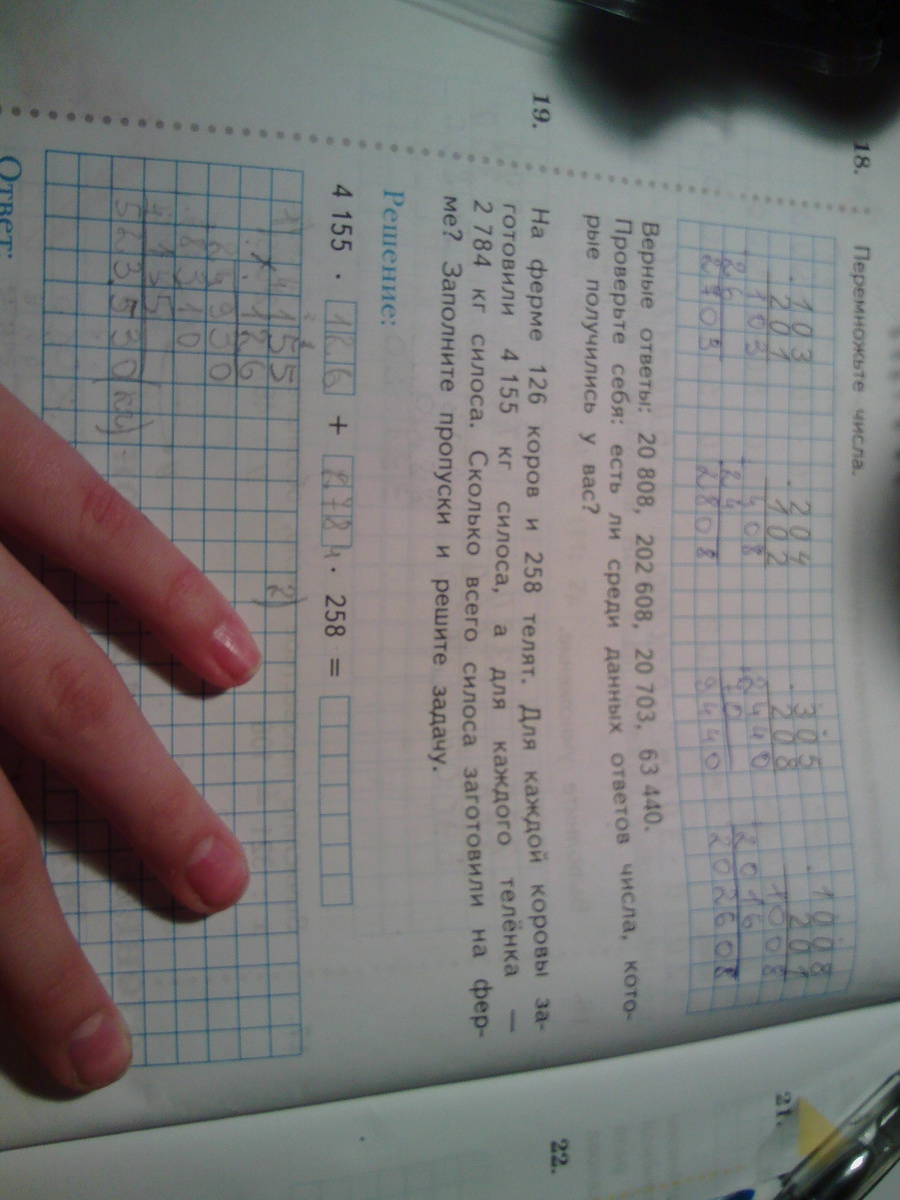 18. Перемножьте числа.
103 204 305 1008
201 102 208 201
103 408 2440 1008
2016
20703 20808 202608
Верные ответы: 20 808, 202 608, 20 703, 63 440.
Проверьте себя: есть ли среди данных ответов числа, кото-
рые получились у вас?
19. На ферме 126 коров и 258 телят. Для каждой коровы за-
готовили 4 155 кг силоса, а для каждого телёнка —
2 784 кг силоса. Сколько всего силоса заготовили на фер-
ме? Заполните пропуски и решите задачу.
Решение:
4 155 · 126 + 2784 · 258 =
1) 4155 2)
× 126
24930
8310
4155
523530 (кг).
Ответ:
21.
22.